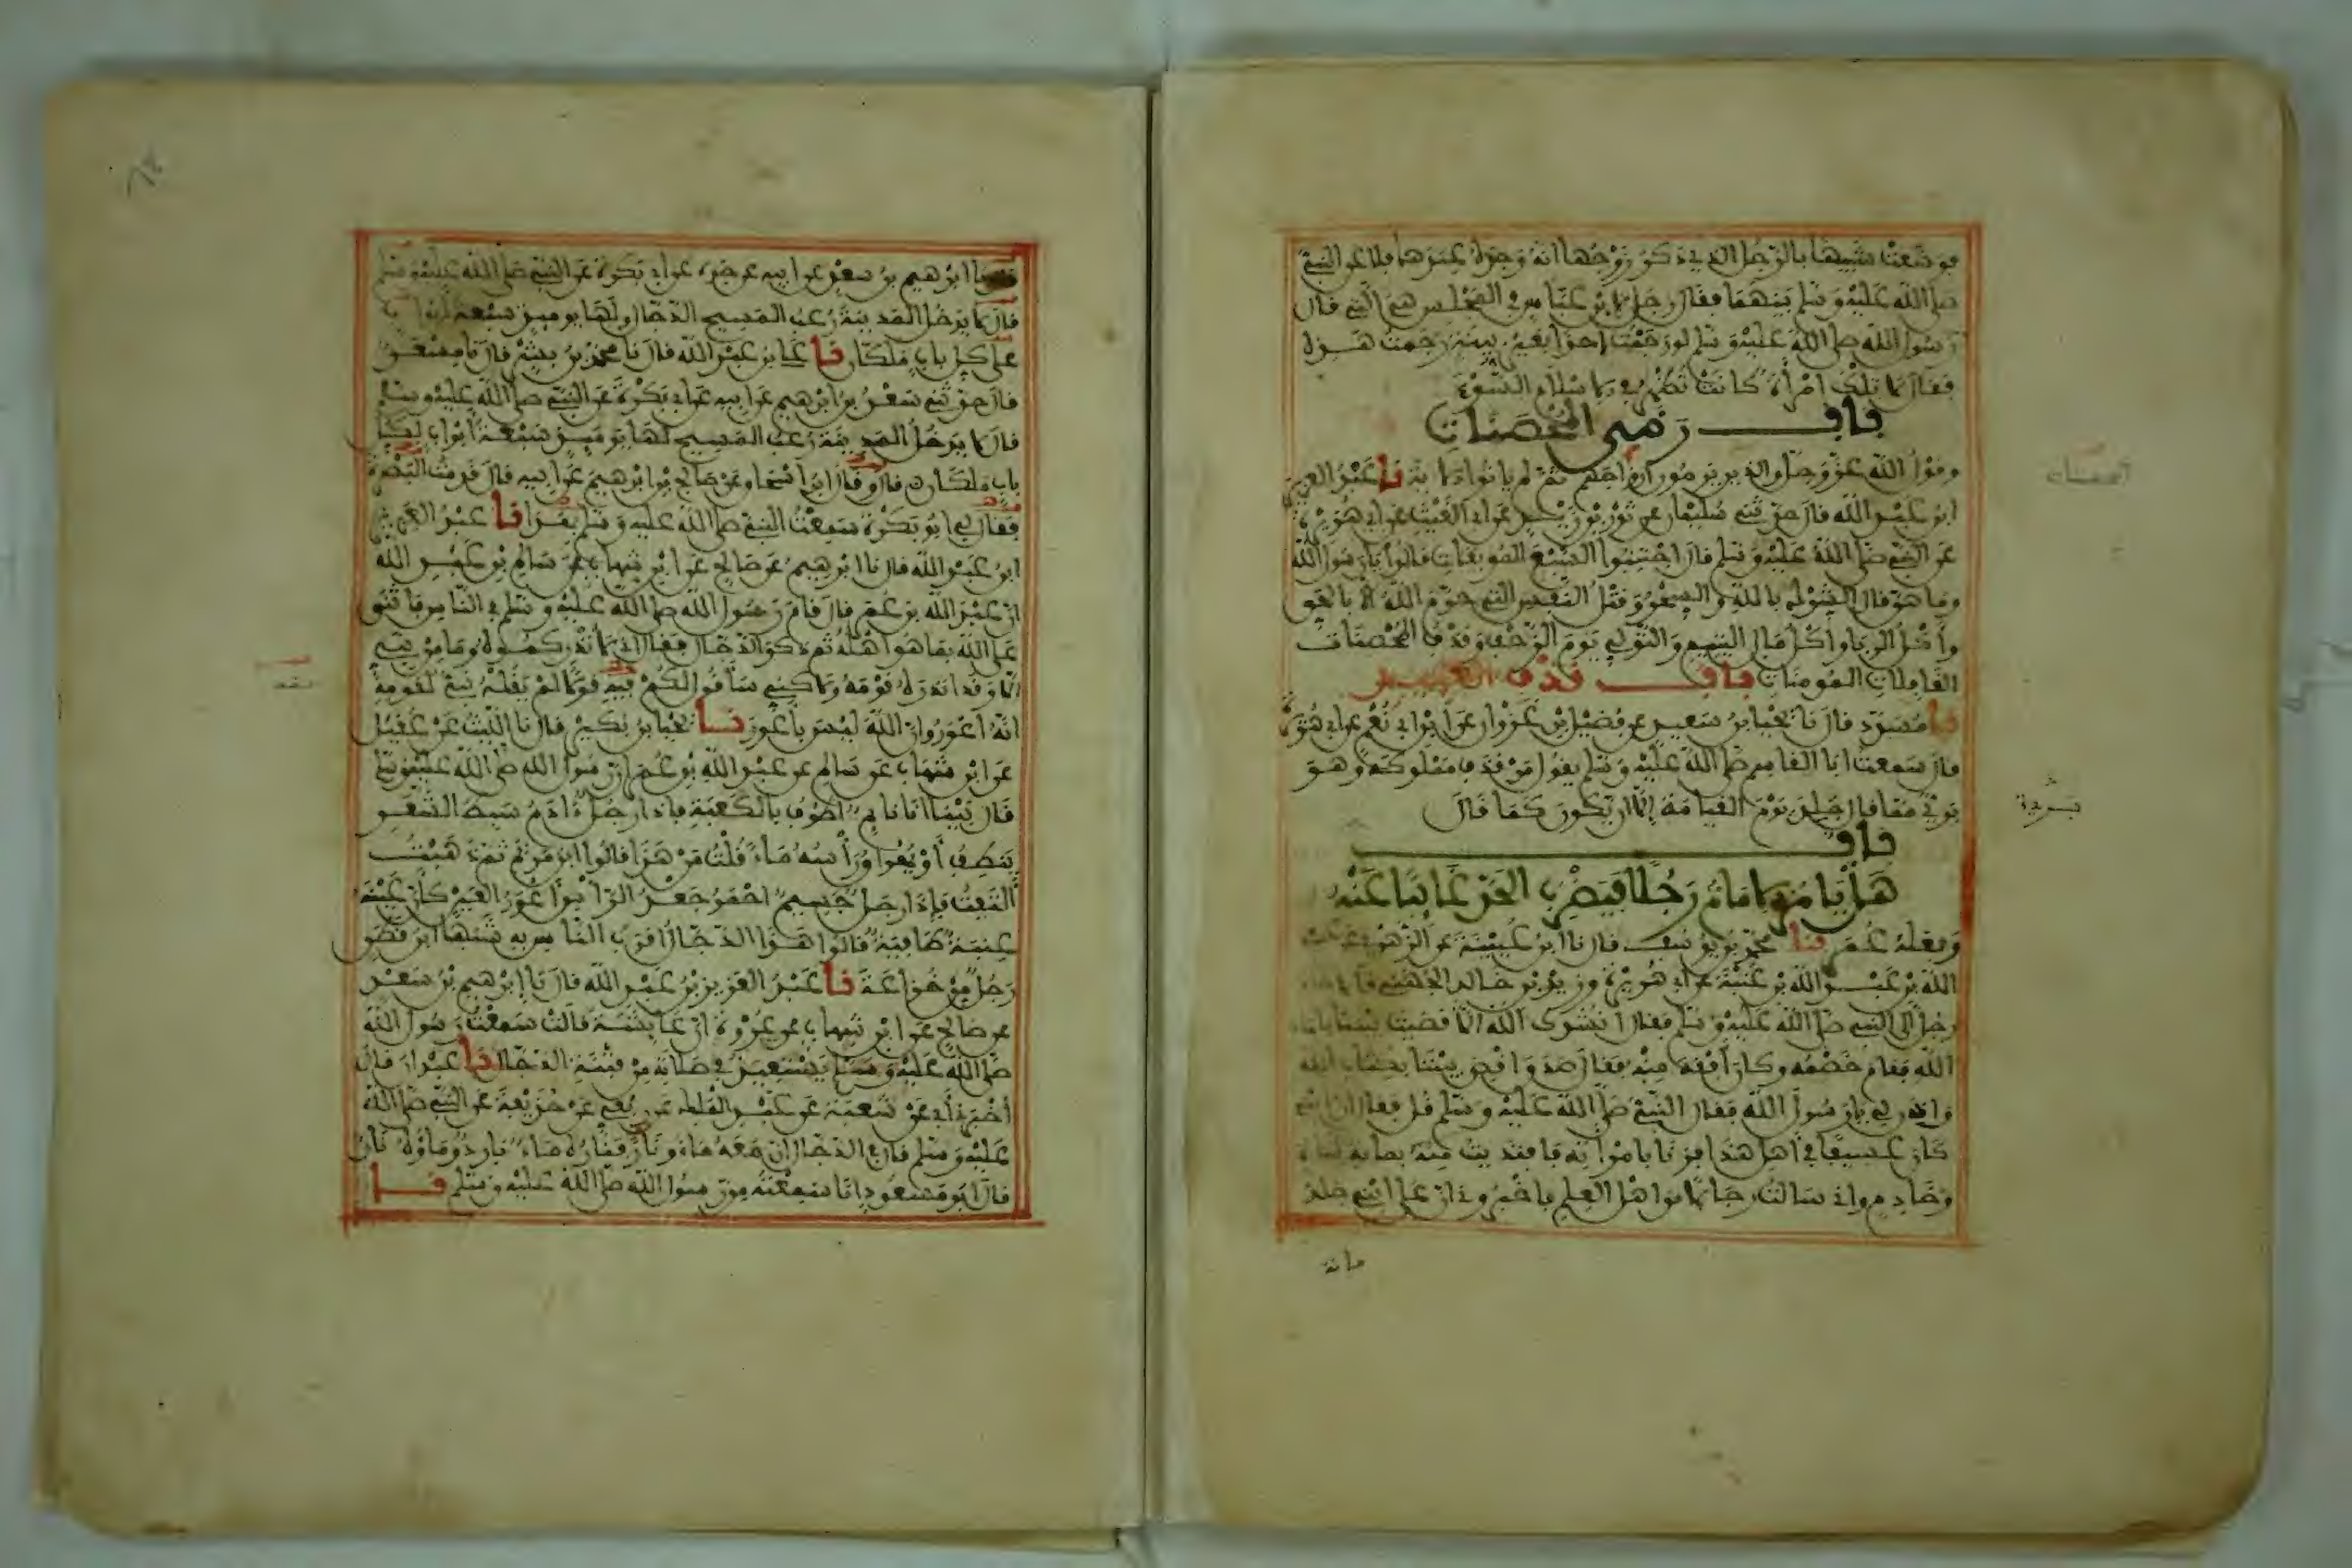 فوضعت شبيها بالرجل الذي ذكر زوجها انه وجده عندها فلاعن النبي
صلى الله عليه وسلم بينهما فقال رجل لابن عباس في المجلس هي التي قال
رسول الله صلى الله عليه وسلم لو رجمت احدا بغير بينة رجمت هذه
فقال لا تلك امرأة كانت تظهر في الاسلام السوء
باب رمي المحصنات
وقول الله عز وجل والذين يرمون ازواجهم ثم لم ياتوا الاية نا عبد العزيز
ابن عبد الله قال حدثني سليمان عن ثور بن زيد عن ابي الغيث عن ابي هريرة
عن النبي صلى الله عليه وسلم قال اجتنبوا السبع الموبقات قالوا يا رسول الله
وما هن قال الشرك بالله والسحر وقتل النفس التي حرم الله الا بالحق
وأكل الربا وأكل مال اليتيم والتولي يوم الزحف وقذف المحصنات
الغافلات المومنات باب قذف العبيد
نا مسدد قال نا يحيا بن سعيد عن فضيل بن غزوان عن ابن ابي نعم عن ابي هريرة
قال سمعت ابا القاسم صلى الله عليه وسلم يقول من قذف مملوكه وهو
بري مما قال جلد يوم القيامة إلا ان يكون كما قال
باب
هل يامر الامام رجلا فيضرب الحد غائبا عنه
وفعله عمر نا محمد بن يوسف قال نا ابن عيينة عن الزهري عن
الله بن عبد الله بن عتبة عن ابي هريرة وزيد بن خالد الجهني قالا
رجل الى النبي صلى الله عليه وسلم فقال انشدك الله الا قضيت بيننا بكتاب
الله فقام خصمه وكان أفقه منه فقال صدق اقض بيننا بكتاب الله
واذن لي يا رسول الله فقال النبي صلى الله عليه وسلم قل فقال ان ابني
كان عسيفا في اهل هذا فزنا بامرأته فافتديت منه بماية شاة
وخادم واني سالت رجالا من اهل العلم فاخبروني ان على ابني جلد
ماية
ابرهيم بن سعد عن ابيه عن جده عن ابي بكرة عن النبي صلى الله عليه وسلم
قال لا يدخل المدينة رعب المسيح الدجال ولها يوميذ سبعة ابواب
على كل باب ملكان نا علي بن عبد الله قال نا محمد بن بشر قال نا مسعر
قال حدثني سعد بن ابرهيم عن ابيه عن ابي بكرة عن النبي صلى الله عليه وسلم
قال لا يدخل المدينة رعب المسيح لها يوميذ سبعة أبواب لكل
باب ملكان قال وقال ابن اسحاق عن صالح بن ابرهيم عن ابيه قال قدمت البصرة
فقال لي ابو بكرة سمعت النبي صلى الله عليه وسلم بهذا نا عبد العزيز
ابن عبد الله قال نا ابرهيم عن صالح عن ابن شهاب عن سالم بن عبد الله
ان عبد الله بن عمر قال قام رسول الله صلى الله عليه وسلم في الناس فاثنى
على الله بما هو أهله ثم ذكر الدجال فقال اني لأنذركموه وما من نبي
الا وقد انذره قومه ولاكني سأقول لكم فيه قولا لم يقله نبي لقومه
انه أعور وان الله ليس بأعور نا يحيا بن بكير قال نا الليث عن عقيل
عن ابن شهاب عن سالم عن عبد الله بن عمر ان رسول الله صلى الله عليه وسلم
قال بينما انا نايم اطوف بالكعبة فاذا رجل ءادم سبط الشعر
ينطف أو يهراق رأسه ماء قلت من هذا قالوا ابن مريم ثم ذهبت
ألتفت فإذا رجل جسيم احمر جعد الرأس أعور العين كأن عينه
عنبة طافية قالوا هذا الدجال اقرب الناس به شبها ابن قطن
رجل من خزاعة نا عبد العزيز بن عبد الله قال نا إبرهيم بن سعد
عن صالح عن ابن شهاب عن عروة ان عايشة قالت سمعت رسول الله
صلى الله عليه وسلم يستعيذ في صلاته من فتنة الدجال نا عبدان قال
أخبرني أبي عن شعبة عن عبد الملك عن ربعي عن حذيفة عن النبي صلى الله
عليه وسلم قال في الدجال ان معه ماء ونارا فناره ماء بارد وماؤه نار
قال ابو مسعود انا سمعته من رسول الله صلى الله عليه وسلم نا